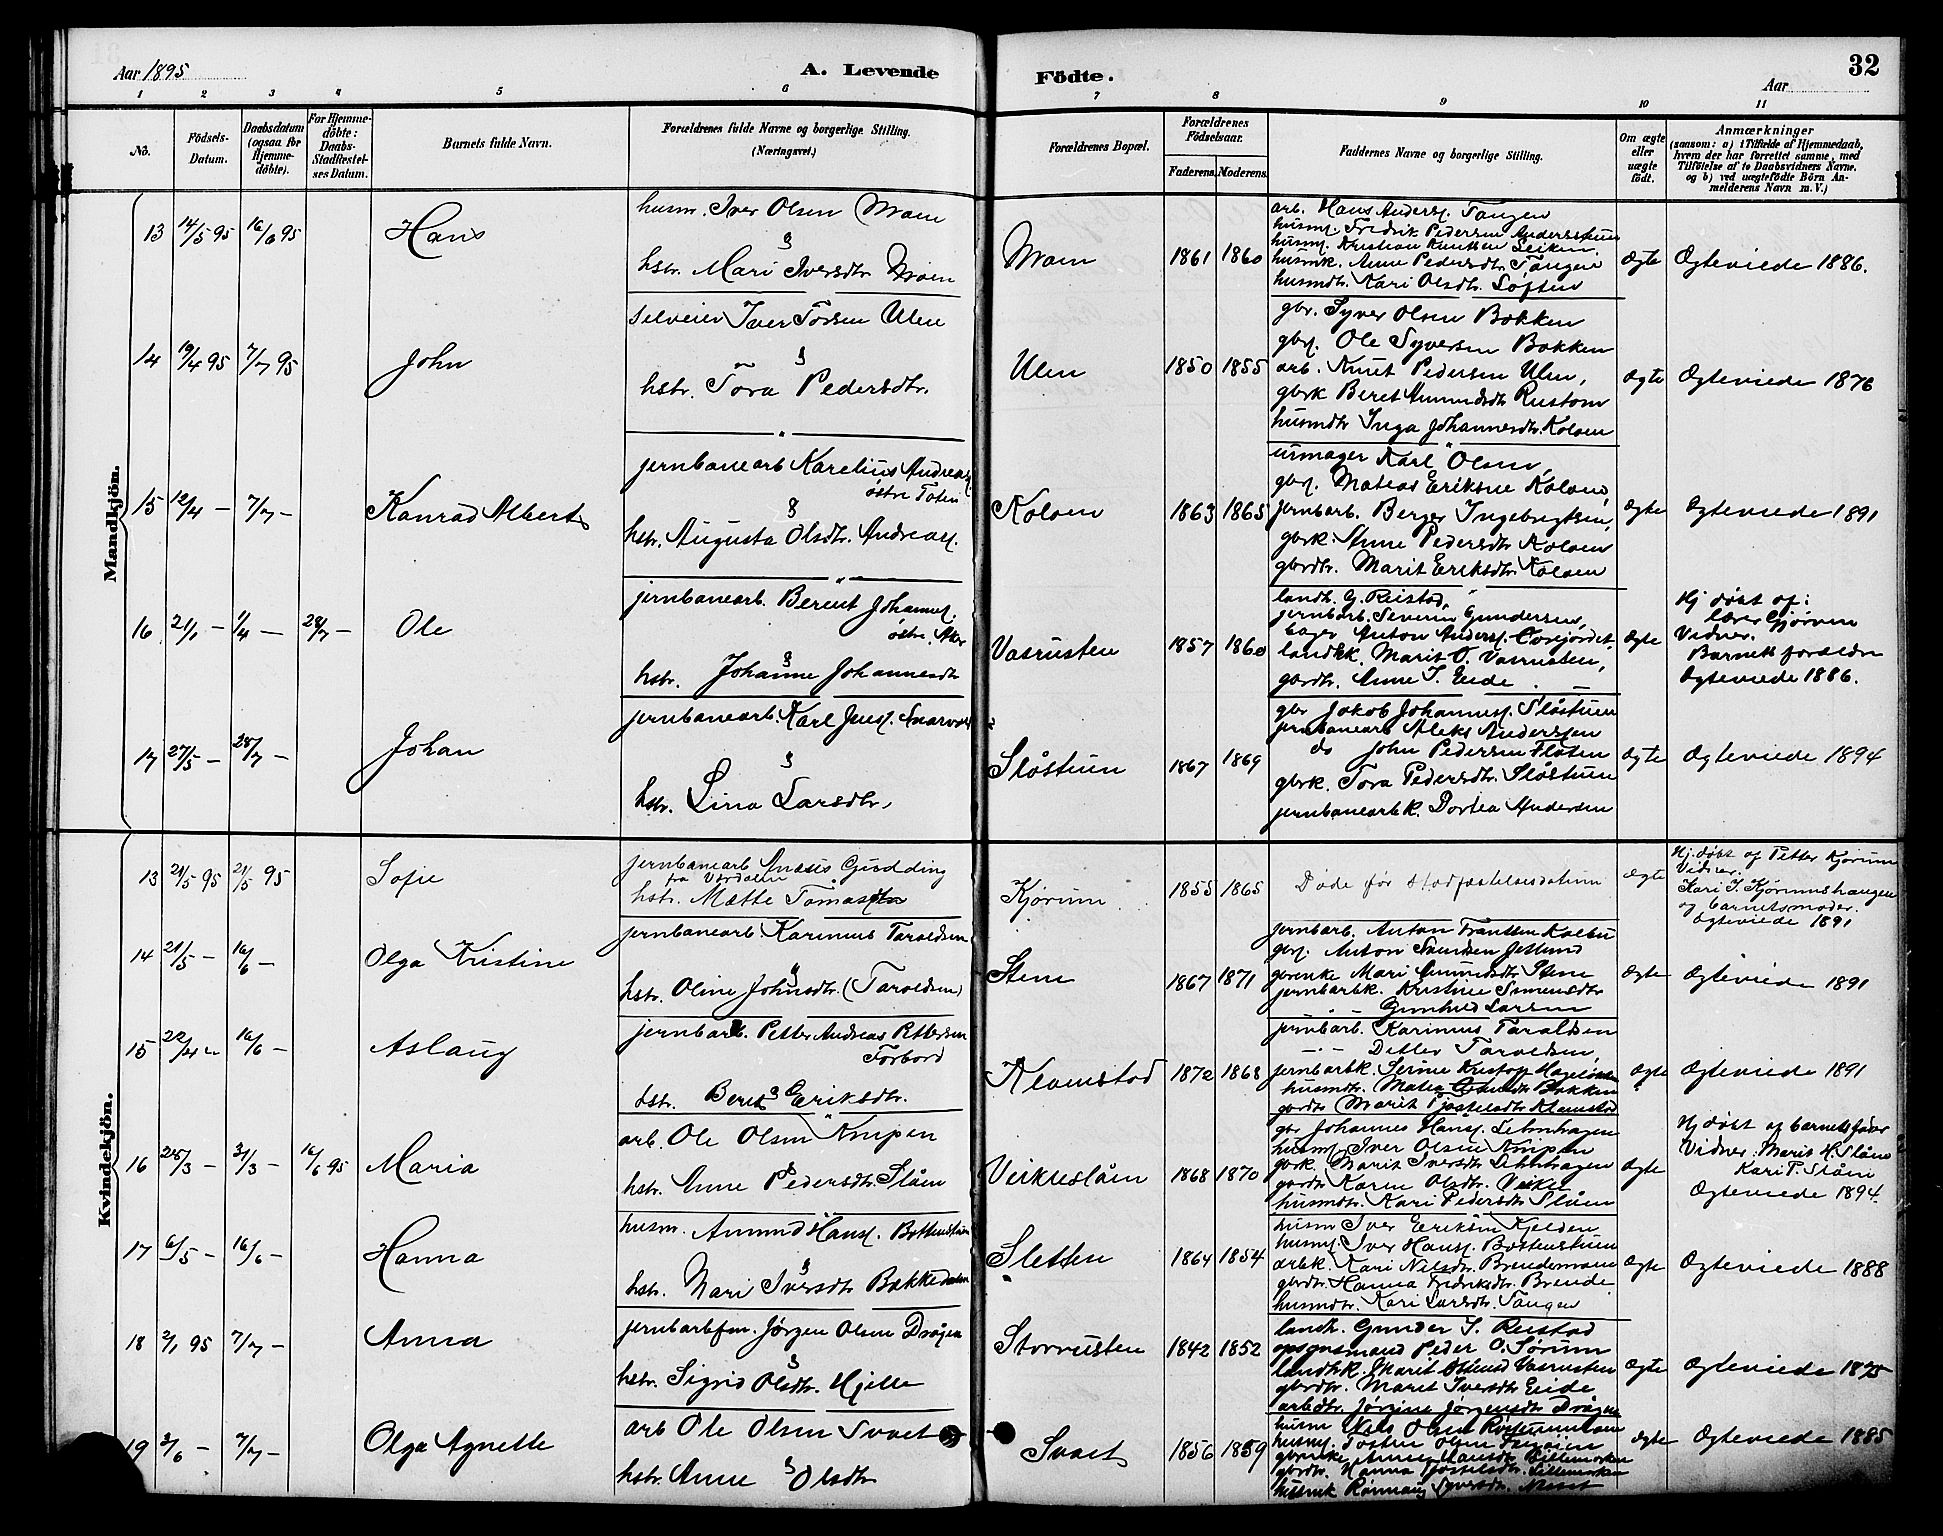 Aar 1895
A. Levende
Födte.
Aar
32
1 2 3 4 5 6 7 8 9 10 11
No.
Födsels-
Datum.
Daabsdatum
(ogsaa for
Hjemme-
döbte).
For Hjemme-
döbte:
Daabs-
Stadfæstel-
ses Datum.
Barnets fulde Navn.
Forældrenes fulde Navne og borgerlige Stilling.
(Næringsvei.)
Forældrenes Bopæl.
Forældrenes
Födselsaar.
Faderens. Moderens.
Faddernes Navne og borgerlige Stilling.
Om ægte
eller
uægte
født.
Anmærkninger
(saasom: a) i Tilfælde af Hjemmedaab,
hvem der har forrettet samme, med
Tilföielse af to Daabsvidners Navne.
og b) ved uægtefödte Börn An-
melderens Navn m. V.)
Mandkjön.
13 14/5 95 16/6 95 Hans
husm. Iver Olsen Moen
&
hstr. Mari Iversdtr Moen
Moen 1861 1860
arb. Hans Anders. Tangen
husm. Fredrik Pedersen Andersstuen
husm. Kristian Knutsen Leiken
husmk. Anne Pedersdtr Tangen
husmdtr. Kari Olsdtr. Löften
ægte Ægteviede 1886.
14 19/4 95 7/7 95 John
selveier Iver Torsen Ulen
&
hstr. Tora Pedersdtr.
Ulen 1850 1855
gbr. Syver Olsen Bakken
gbs. Ole Syversen Bakken
arb. Knut Pedersen Ulen,
gbrk Beret Amundsdtr Rustom
husmdtr Inga Johannesdtr. Koloen
ægte Ægteviede 1876
15 12/4 - 7/7 - Konrad Albert
jernbanearb Karelius Andreas.
östre Toten
&
hstr. Augusta Olsdtr. Andreas.
Koloen 1863 1865
urmager Karl Olsen,
gbs. Mateas Eriksen Koloen,
jernbarb. Berger Ingebrigtsen,
gbrk. Anne Pedersdtr Koloen
gbrdtr. Marit Eriksdtr Koloen
ægte Ægteviede 1891
16 21/1 - 1/4 - 28/7 - Ole
jernbanearb. Berent Johannes.
östre Aker
&
hstr. Johanne Johannesdtr
Vasrusten 1857 1860
landh. G. Reistad,
jernbarb. Severin Gundersen,
bager Anton Anders.
landhk. Marit O. Vasrusten,
gardtr. Anne I. Eide
ægte
Hj döbt af:
lærer Gjörven
Vidner.
Barnets forældre
Ægteviede 1886.
17 27/5 - 28/7 - Johan
jernbanearb. Karl Jens.
&
hstr. Lina Larsdtr,
Slåstuen 1867 1869
gbr Jakob Johannes. Slåstuen
jernbanearb Aleks Anderssen
do John Pedersen Flaten
gbrk. Tora Pedersdtr. Slåstuen
jernbanearbk. Dortea Andersen
ægte Ægteviede 1894
Kvindekjön.
13 21/5 95 21/5 95 Sofie
jernbanearb Anæus Gudding
fra Værdalen
hstr. Mætte Tomasdtr
Kjörum 1855 1865
Döde før stadfæstelsesdatum
ægte
Hj. döbt af Petter Kjörum
Vidner.
Kari I. Kjörumshaugen
og barnets moder.
Ægteviede 1891
14 21/5 - 16/6 - Olga Kristine
jernbanearb Karinius Taraldsen
&
hstr. Oline Johnsdtr. (Taraldsen)
Stene 1867 1871
jernbarb. Anton Frantsen Kolbu
gbs. Anton Knudsen Jetlund
gbrenke Mari Amundsdtr Stene
jernbarbk. Kristine Simensdtr
- - Gunhild Larsen
ægte Ægteviede 1891
15 22/4 - 16/6 - Aslaug
jernbarb. Petter Andreas Pettersen
Forbord
&
hstr. Beret Eriksdtr.
Klamstad 1872 1868
jernbarb. Karinius Taraldsen
- - Detlev Taraldsen,
jernbarbk. Serine Kristoff.
husmdtr. Matea Bakken
gbrdtr Marit Kjöstelsdtr Klamstad
ægte Ægteviede 1891
16 28/3 - 31/3 - 16/6 95 Maria
arb. Ole Olsen Knipen
&
hstr. Anne Pedersdtr. Slåen
Veikleslåen 1868 1870
gbr Johannes Hans. Lehnhagen
husm. Iver Olsen Knipen
gbrk. Marit Iversdtr Lehnhagen
gardtr Karen Olsdtr. Veikle
husmdtr. Kari Pedersdtr Slåen
ægte
Hj döbt af barnets fader
Vidner: Marit H. Slåen
Kari P. Slåen
Ægteviede 1894.
17 6/5 - 16/6 - Hanna
husm. Amund Hans. Bottenstuen
&
hstr. Mari Iversdtr Bakkedalen
Sletten 1864 1854
husm Iver Eriksen Kjelden
husm. Iver Hans. Bottenstuen
arbk. Kari Nilsdtr. Brendemoen
gbrdtr. Hanna Fredriksdtr. Brende
husmdtr. Kari Larsdtr. Tangen
ægte Ægteviede 1888
18 2/1 95 7/7 - Anna
jernbarbfm. Jørgen Olsen Drågen
&
hstr. Sigrid Olsdtr. Hjelle
Storrusten 1842 1852
landh. Gunder I. Reistad
opsynsmand Peder O. Sörum
landhk. Marit Vasrusten
gbrdtr. Marit Iversdtr Eide
arbdtr. Jörgine Jörgensdtr Drågen
ægte Ægteviede 1875
19 3/6 - 7/7 - Olga Agnette
arb Ole Olsen Svaet
&
hstr. Anne Olsdtr
Svaet 1856 1859
husm Nils Olsen
husm. Tosten Olsen
gbrenke Anne Hansdtr. Lillemorken
gbrdtr. Hanna Kjöstelsdtr. Lillemorken
Rönnaug Syversdtr.
ægte Ægteviede 1885